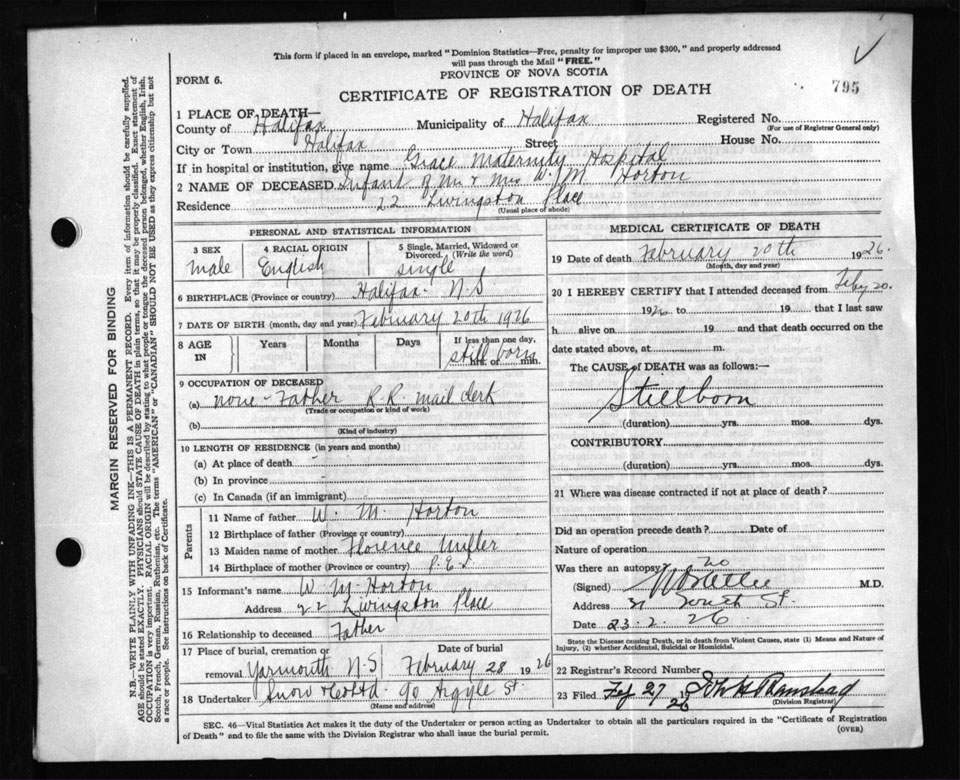 This form if placed in an envelope, marked "Dominion Statistics—Free, penalty for improper use $300," and properly addressed
will pass through the Mail "FREE."
FORM 6.
PROVINCE OF NOVA SCOTIA
CERTIFICATE OF REGISTRATION OF DEATH
795
1 PLACE OF DEATH—
County of Halifax Municipality of Halifax Registered No.
(For use of Registrar General only)
City or Town Halifax Street House No.
If in hospital or institution, give name Grace Maternity Hospital
2 NAME OF DECEASED Infant of Mr & Mrs W. M. Horton
Residence 22 Livingston Place
(Usual place of abode)
PERSONAL AND STATISTICAL INFORMATION
3 SEX 4 RACIAL ORIGIN 5 Single, Married, Widowed or
Divorced. (Write the word)
male English single
6 BIRTHPLACE (Province or country) Halifax N.S
7 DATE OF BIRTH (month, day and year) February 20th 1926
8 AGE IN Years Months Days If less than one day,
still born hrs. or min.
9 OCCUPATION OF DECEASED
(a) none - Father R.R. mail clerk
(Trade or occupation or kind of work)
(b)
(Kind of industry)
10 LENGTH OF RESIDENCE (in years and months)
(a) At place of death
(b) In province
(c) In Canada (if an immigrant)
Parents
11 Name of father W. M. Horton
12 Birthplace of father (Province or country)
13 Maiden name of mother Florence
14 Birthplace of mother (Province or country) P.E.I
15 Informant's name W M Horton
Address 22 Livingston Place
16 Relationship to deceased Father
17 Place of burial, cremation or removal Date of burial
Yarmouth N.S February 28 1926
18 Undertaker Snow & Co Ltd. 90 Argyle St.
(Name and address)
MEDICAL CERTIFICATE OF DEATH
19 Date of death February 20th 1926.
(Month, day and year)
20 I HEREBY CERTIFY that I attended deceased from Feby 20.
1926 to 19 that I last saw
h alive on 19 and that death occurred on the
date stated above, at m.
The CAUSE of DEATH was as follows:—
Stillborn
(duration) yrs. mos. dys.
CONTRIBUTORY
(duration) yrs. mos. dys.
21 Where was disease contracted if not at place of death?
Did an operation precede death? Date of
Nature of operation
Was there an autopsy? No
(Signed) M.D.
Address South St.
Date 23.2.26
State the Disease causing Death, or in death from Violent Causes, state (1) Means and Nature of
Injury, (2) whether Accidental, Suicidal or Homicidal.
22 Registrar's Record Number
23 Filed 27 1926
(Division Registrar)
SEC. 46—Vital Statistics Act makes it the duty of the Undertaker or person acting as Undertaker to obtain all the particulars required in the "Certificate of Registration
of Death" and to file the same with the Division Registrar who shall issue the burial permit.
(OVER)
MARGIN RESERVED FOR BINDING
N.B.—WRITE PLAINLY WITH UNFADING INK—THIS IS A PERMANENT RECORD. Every item of information should be carefully supplied.
AGE should be stated EXACTLY. PHYSICIANS should STATE CAUSE OF DEATH in plain terms, so that it may be properly classified. Exact statement of
OCCUPATION is very important. RACIAL ORIGIN will be described by stating to what people or tongue the deceased person belonged, whether English, Irish,
Scotch, French, German, Russian, Ruthenian, etc. The terms "AMERICAN" or "CANADIAN" SHOULD NOT BE USED as they express citizenship but not
a race or people. See instructions on back of Certificate.